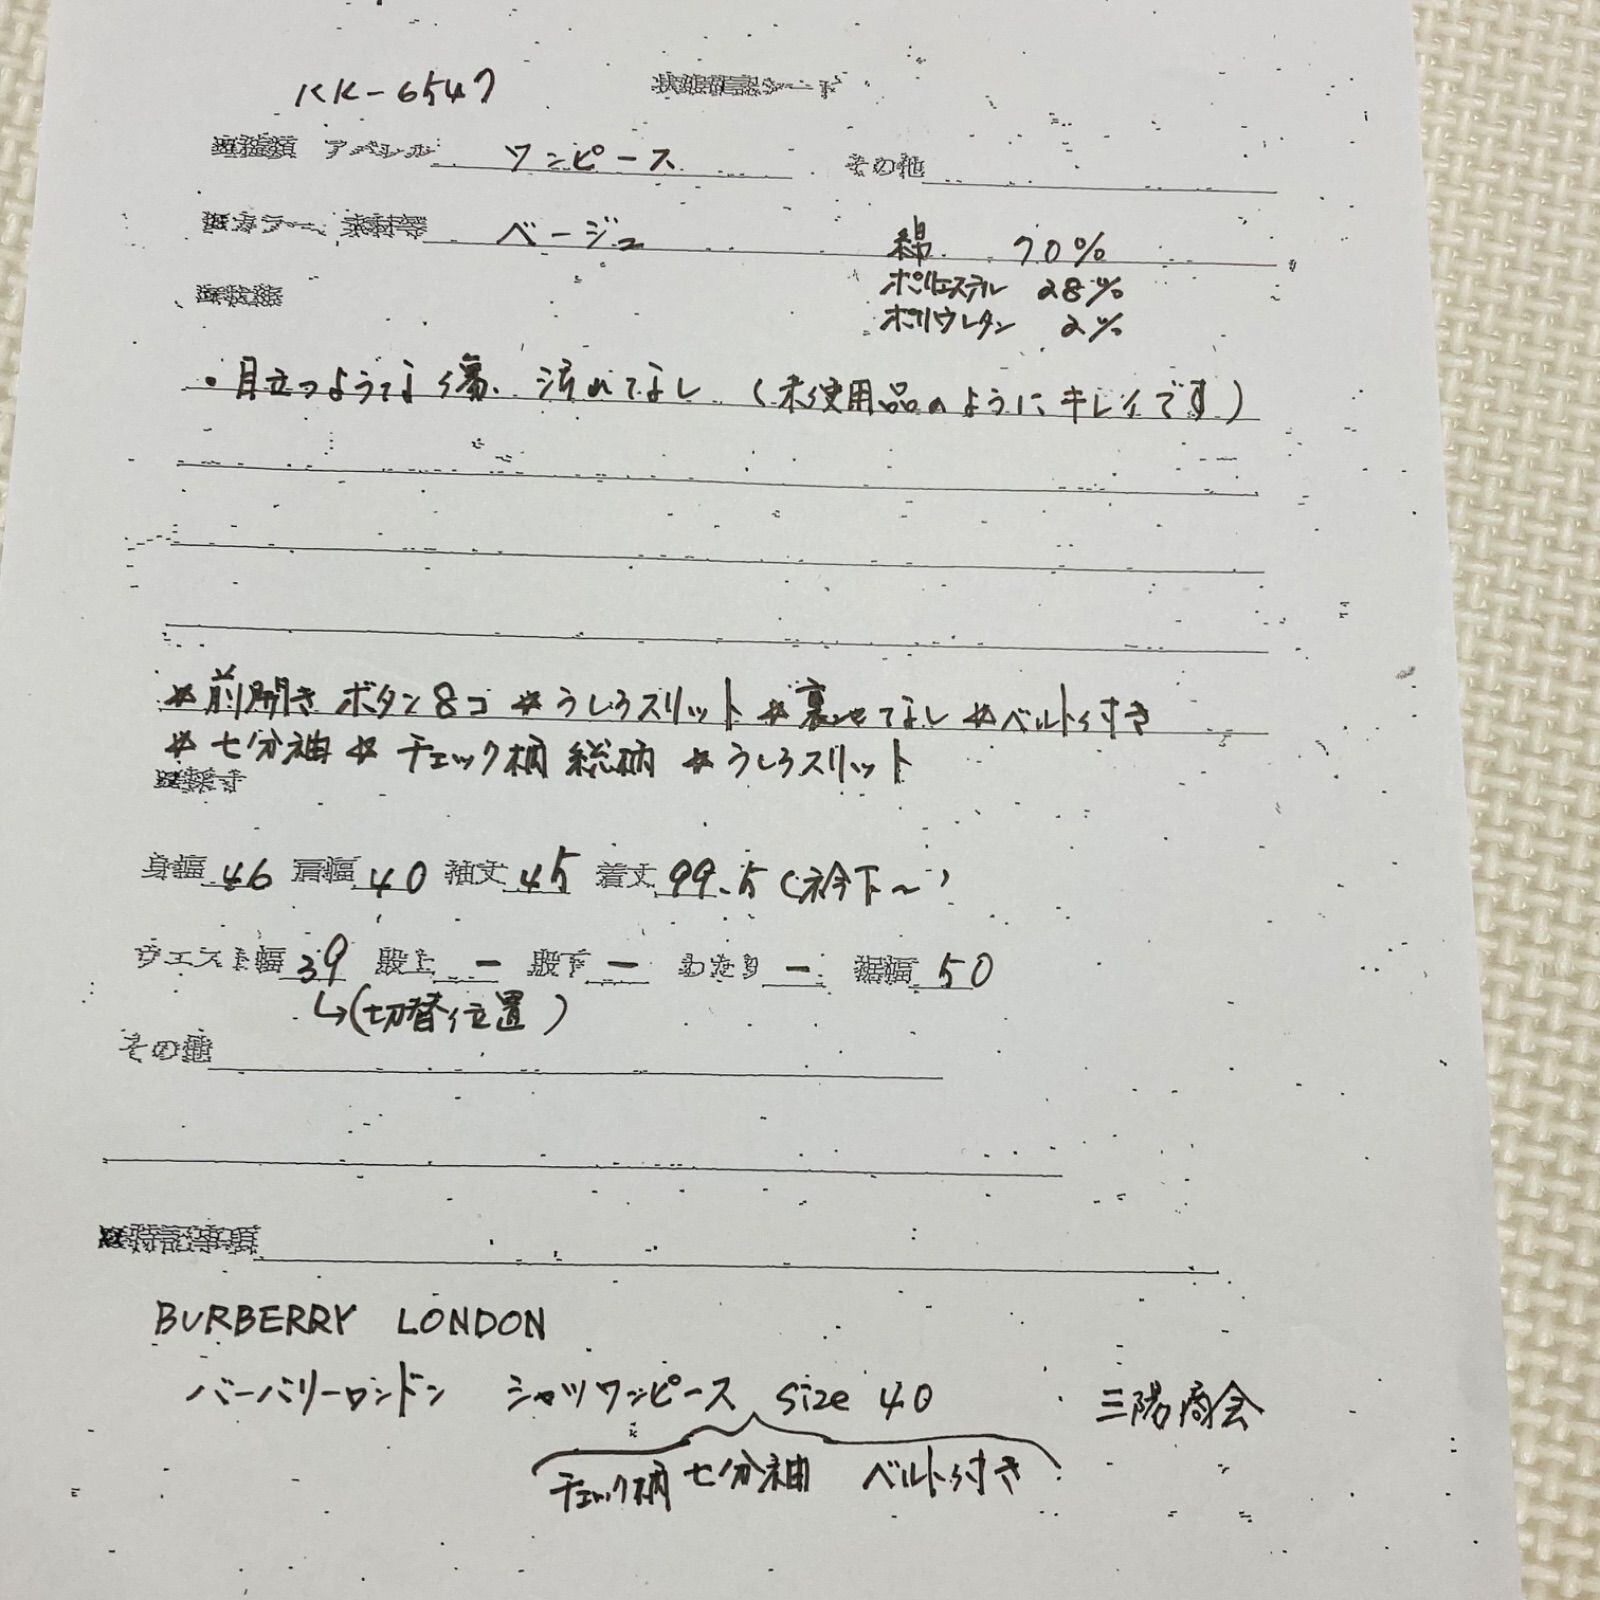 KK-6547 状態確認シート
種類 アパレル ワンピース その他
カラー、素材等 ベージュ 綿 70%
ポリエステル 28%
ポリウレタン 2%
・目立つような傷、汚れてなし (未使用品のようにキレイです)
*前開き ボタン8コ *うしろスリット *裏地てなし *ベルト付き
*七分袖 *チェック柄 総柄 *うしろスリット
採寸
身幅 46 肩幅 40 袖丈 45 着丈 99.5 (衿下~)
ウエスト幅 39 股上 - 股下 - わたり - 裾幅 50
↳(切替位置)
その他
特記事項
BURBERRY LONDON
バーバリーロンドン シャツワンピース size 40 三陽商会
チェック柄 七分袖 ベルト付き